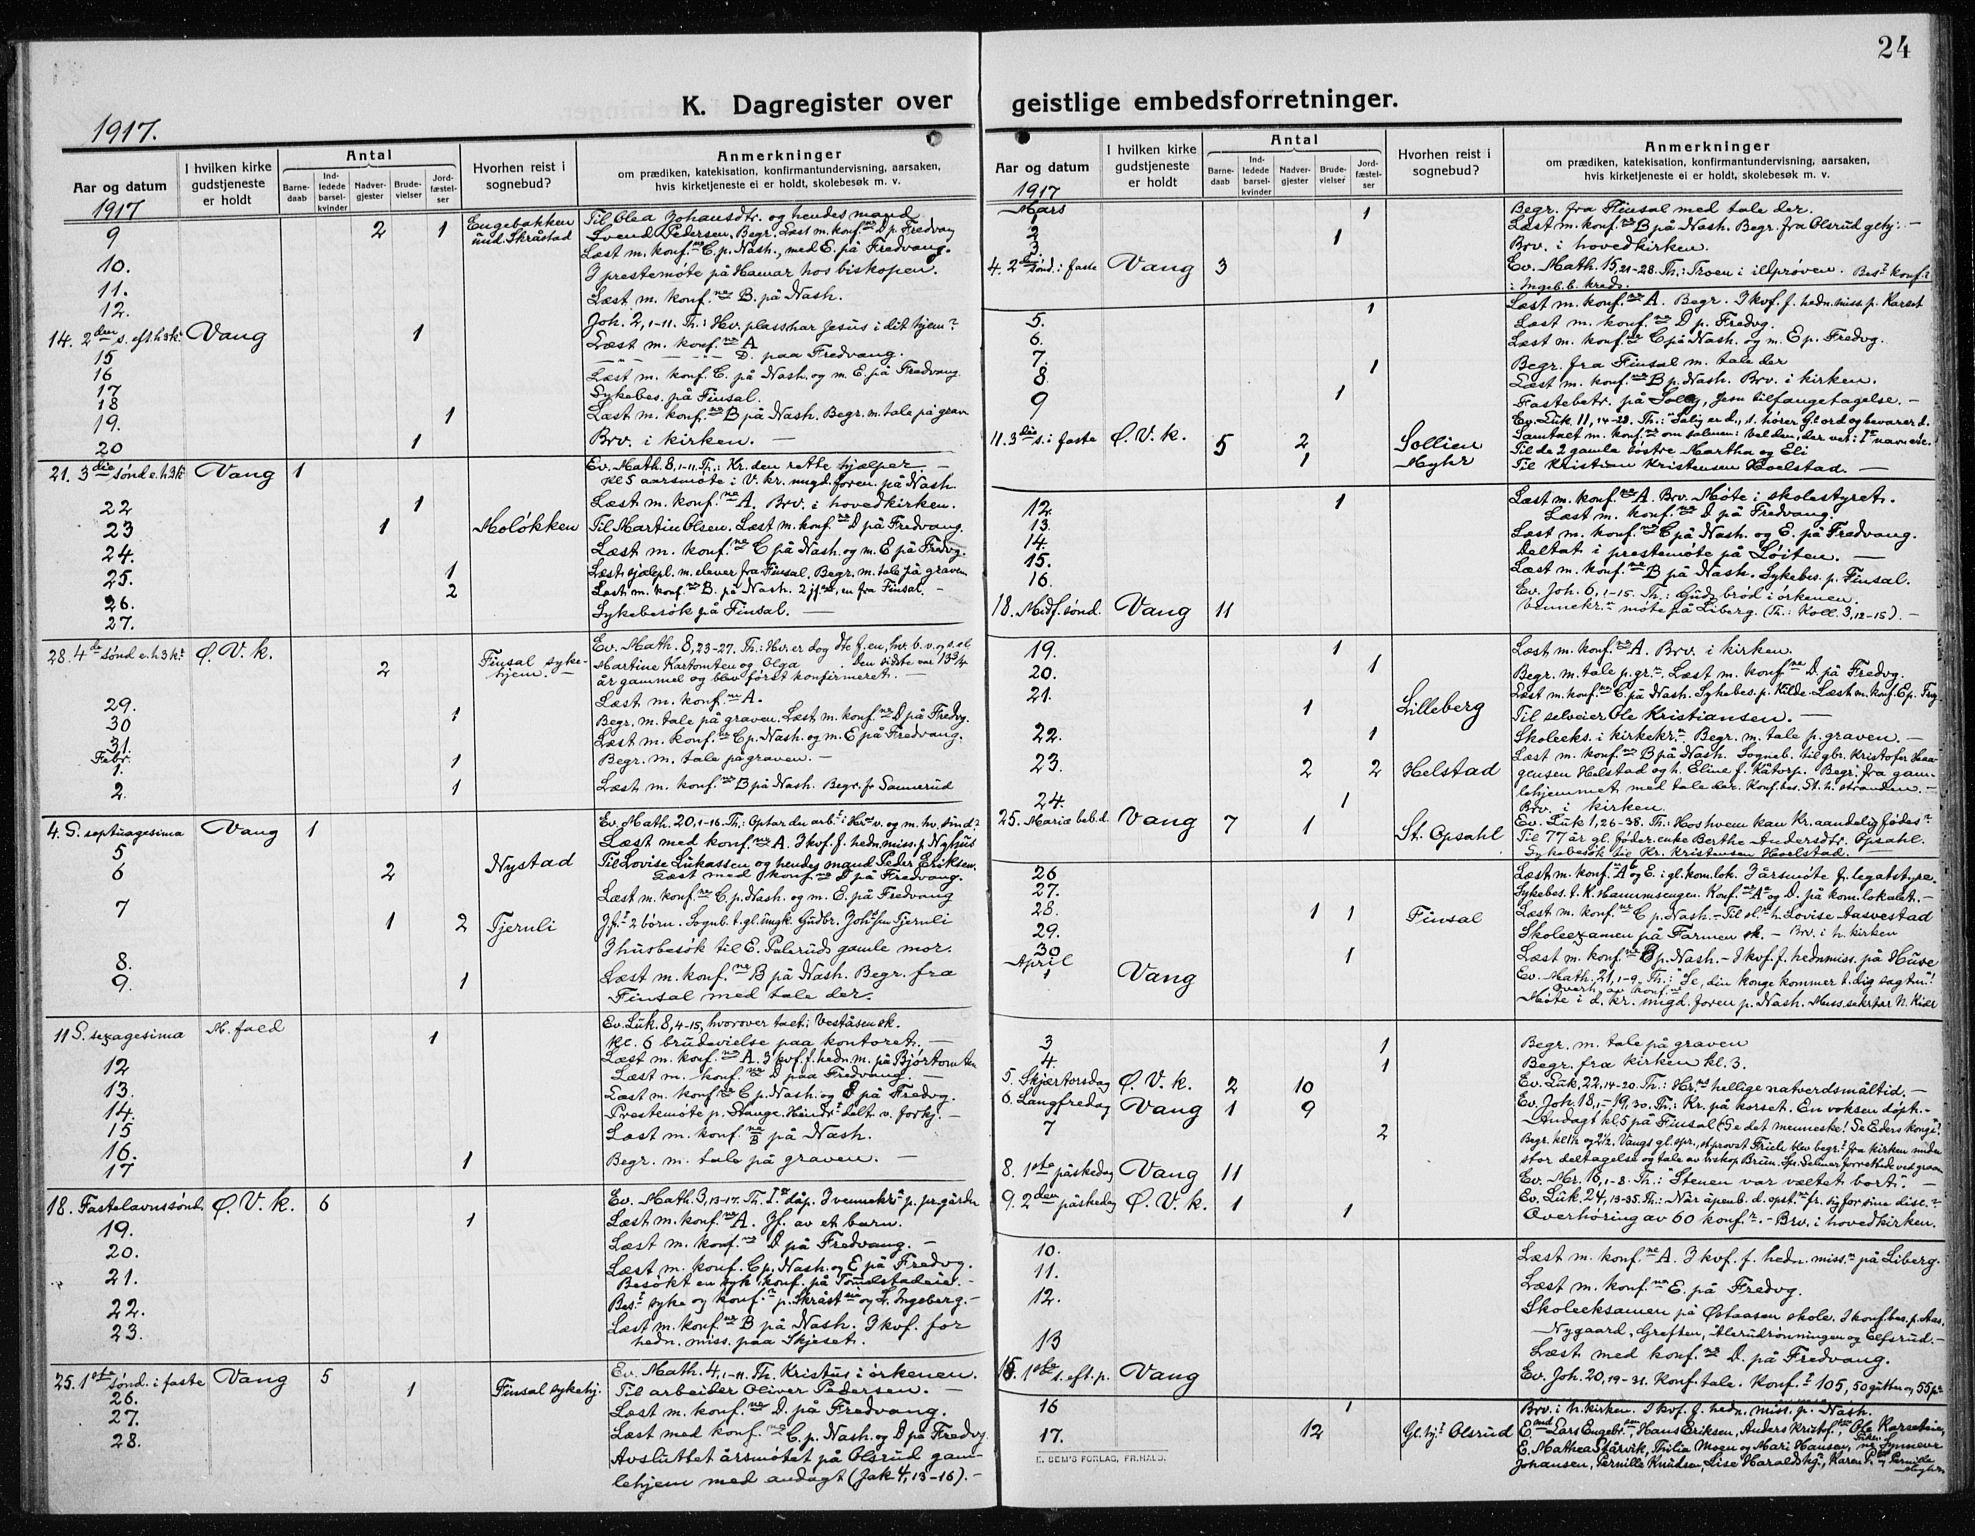 24
K. Dagregister over geistlige embedsforretninger.
1917.
Aar og datum
I hvilken kirke gudstjeneste er holdt
Antal
Barne-daab
Ind-ledede barsel-kvinder
Nadver-gjester
Brude-vielser
Jord-fæstel-ser
Hvorhen reist i sognebud?
Anmerkninger
om prædiken, katekisation, konfirmantundervisning, aarsaken,
hvis kirketjeneste ei er holdt, skolebesøk m. v.
1917
9 2 1 Engebakken und. Skråstad Til Olea Johansdtr. og hendes mand
Svend Pedersen. Begr. Læst m. konf.ne D p. Fredvang
10. Læst m. konf.ne C p. Nash., med E. på Fredvang.
11. I prestemøte på Hamar hos biskopen.
12. Læst m. konf.ne B. på Nash.
14. 2den s. eft. h3k. Vang 1 Joh. 2, 1-11. Th.: Hv. plass har Jesus i dit hjem?
15 Læst m. konf.ne A
16 D. paa Fredvang.
17 Læst m. konf. C. på Nash. og m. E. på Fredvang
18 Sykebes. på Finsal.
19. 1 Læst m. konf.ne B på Nash. Begr. m. tale på grav
20 1 Brv. i kirken. —
21. 3die sønd e. h3k Vang 1 Ev. Math. 8, 1-11. Th.: Kr. den rette hjælper. —
Kl 5 aarsmøte i V. kr. ungd.foren. på Nash.
22 1 Læst m. konf.ne A. Brv. i hovedkirken.
23 1 Moløkken Til Martin Olsen. Læst m. konf.ne D på Fredvang.
24. Læst m. konf.ne C på Nash. og m. E på Fredvg.
25. 1 Begr. m. tale på graven
26. 2 Læst m. konf.ne B. på Nash. 2 jf., en fra Finsal. —
27. Sykebesøk på Finsal. —
28. 4de sønd e. h3k. Ø. V. k. 2 Finsal syke-hjem. — Ev. Math. 8, 23-27. Th.: Hv. er dog
Martine Kartomten og Olga . Den sidste var 13 3/4
år gammel og blev først konfirmeret. —
29. Læst m. konf.ne A.
30 1 Begr. m. tale på graven. Læst m. konf.ne D på Fredvg.
31. Læst m. konf.ne C p. Nash. og m. E på Fredvang.
Febr.
1. 1 Begr. m. tale på graven. —
2. 1 Læst m. konf.ne B på Nash. Begr. fr Sannerud
4. S. septuagesima Vang 1 Ev. Math. 20, 1-16. Th.:
5 Læst med konf.ne A. I kvf. f. hedn. miss. p. Nyhus
6 2 Nystad Til Lovise Lukassen og hendes mand Peder Eriksen.
Læst med konf.ne D på Fredvang.
7 Læst m. konf.ne C. p. Nash. og m. E. på Fredvang
1 2 Tjernli Jf. 2 børn. Sognb. t. gl. ungk. Gudbr. Johs Tjernli
8. I husbesøk til E. Palerud's gamle mor.
9. 1 Læst m. konf.ne B på Nash. Begr. fra
Finsal med tale der.
11 S. sexagesima M. fald 1 Ev. Luk. 8, 4-15, hvorover talt i Veståsen sk.
Kl. 6 brudevielse paa kontoret. —
12 Læst m. konf.ne A. I kvf. f. hedn. m. på Bjørtomten
13. Læst m. konf.ne D paa Fredvang. —
14. Læst m. konf.ne C p. Nash. og E på Fredvg.
15 Prestemøte p. Stange. delt. v. forkj. —
16. Læst m. konf.ne B på Nash.
17 1 Begr. m. tale på graven. —
18. Fastelavnssønd. Ø. V. k. 6 Ev. Math. 3, 13-17. Th. I. dåp. I vennekr. p. pr.gården
19. 1 Læst m. konf.ne A. Jf. av et barn.
20. Læst m. konf.ne D. på Fredvang. —
21. Læst m. konf. C p. Nash. og E på Fredvg.
Besøkt en syk konf. på Tomelstadeie. —
22. Bes. syke og konf. p. Skråst eie og L. Ingeberg. —
23. Læst m. konf.ne B på Nash. I kvf. for
hedn. miss. paa Skjeset.
25. 1ste sønd. i faste Vang 5 1 Finsal sykehj. Ev. Math. 4, 1-11. Th. Kristus i ørkenen.
Til arbeider Oliver Pedersen. —
26. Læst m. konf.ne D. på Fredvang.
27. Læst med konf.ne C. p. Nash. og D på Fredvg.
28. Avsluttet årsmøtet på Olsrud gam-
lehjem med andagt (Jak 4, 13-16). —
Aar og datum
I hvilken kirke gudstjeneste er holdt
Antal
Barne-daab
Ind-ledede barsel-kvinder
Nadver-gjester
Brude-vielser
Jord-fæstel-ser
Hvorhen reist i sognebud?
Anmerkninger
om prædiken, katekisation, konfirmantundervisning, aarsaken,
hvis kirketjeneste ei er holdt, skolebesøk m. v.
1917
Mars
1 1 Begr. fra Finsal med tale der.
2 Læst m. konf.ne B på Nash. Begr. fra Olsrud gehj. —
3 1 Brv. i hovedkirken.
4. 2den sønd. i faste Vang 3 Ev. Math. 15, 21-28. Th.: Troen i ildprøven. Bes. konf.
i Ingeb.b. kreds.
5. 1 Læst m. konf.ne A. Begr. I kvf. f. hedn. miss. p. Karset
6. Læst m. konf.ne D p. Fredvg.
7. Læst m. konf.ne C på Nash. og m. E p. Fredvg.
8. 1 Begr. fra Finsal m. tale der
9 1 Læst m. konf.ne B p. Nash. Brv. i kirken.
Fastebetr. på Solbg, Jesu tilfangetagelse. —
11. 3die s. i faste Ø. V. k. 5 2 Sollien Ev. Luk 11, 14-28. Th.: Salig er d., s. hører G. ord og bevarer d.
1 Myhr Til de 2 gamle søstre Martha og Eli
Til Kristian Kristensen Hoelstad. —
12. 1 Læst m. konf.ne A. Brv. Møte i skolestyret.
13. Læst m. konf.ne D på Fredvang.
14. Læst m. konf.ne C på Nash. og E. på Fredvang.
15. Deltat i prestemøte på Løiten. —
16. Læst m. konf.ne B på Nash. Sykebes. p. Finsal.
18. Midf. sønd. Vang 11 Ev. Joh. 6, 1-15. Th.: Guds brød i ørkenen.
Vennekr. møte på Liberg. (Th.: Koll. 3, 12-15). —
19. 1 Læst m. konf.ne A. Brv. i kirken.
20. 1 Begr. m. tale p. gr. Læst m. konf.ne D. på Fredvg.
21. Læst m. konf.ne C. på Nash. Sykebes. p. Kilde. Læst m. konf. E p. Frvg
1 Lilleberg Til selveier Ole Kristiansen. —
22. 1 Skoleeks. i kirkekr. Begr. m. tale p. graven. —
23. 2 2 Helstad Læst m. konf.ne B på Nash. Sogneb. til gbr. Kristofer Haa-
gensen Helstad og h. Eline f. Kåtorp. Begr. fra gam-
lehjemmet med tale der. Konf.bes. St. h. stranden. —
24. 1 Brv. i kirken.
25. Mariæ beb.d. Vang 7 1 St. Opsahl Ev. Luk 1, 26-38. Th.: Hos hvem kan Kr. aandelig fødes?
Til 77 år gl. føder. enke Berthe Andersdtr. Opsahl.
Sykebesøk til Kr. Kristensen Hoelstad. —
26 Læst m. konf. A og E. i gl. kom.lok. I årsmøte f. legatstyre.
27. Sykebes. t. K. Hammersengen. Konf.ne A og D. på kom. lokalet. —
28. 1 1 Finsal Læst m. konf.ne C p. Nash. — Til sl. h. Lovise Aasvestad
29. Skoleexamen på Farmen sk. — Brv. i h. kirken
30 1 Læst m. konf.ne B p. Nash. — I kvf. f. hedn.miss. på Huse
April
1 Vang Ev. Math. 21, 1-9. Th.: "Se, din konge kommer t. dig sagtm."!
Overh. av konf.
Møte i d. kr. ungd. foren p. Nash. Miss.sekrtær N. Kiær
3 1 Begr. m. tale på graven
4. 1 Begr. fra kirken kl. 3.
5. Skjærtorsdag Ø. V. k. 2 10 Ev. Luk. 22, 14-20. Th.: Hr.ns hellige natverdsmåltid. —
6. Langfredag Vang 1 9 Ev. Joh. 18, 1 - 19, 30. Th.: Kr. på korset. En voksen døpt. —
Andagt kl 5 på Finsal (Se det menneske! Se Eders konge!
7 2 Begr. kl 1½ og 2½. Vangs gl. spr., st.provst Friele blev begr. fra kirken under
stor deltagelse og tale av biskop Bruun. Spr. Selmer forrettede ved graven
8. 1ste påskedag Vang 11 Ev. Mr. 16, 1-8. Th.: "Stenen var væltet bort." —
9. 2den påskedag Ø. V. k. 1 1 Ev. Luk. 24, 13-35. Th.: Når åpenb. d. opst.ne fr. sig for sine disc.?
Overhøring av 60 konf. — Brv. i hovedkirken.
10. Læst m. konf.ne A. I kvf. f. hedn. miss.n på Liberg.
11. Læst m. konf.ne E. på Fredvg.
12. Skoleeksamen på Østaasen skole. I konf.bes. p. Aas,
Nygaard, Greften, Alerudrønningen og Elfsrud. —
13 Læst med konf.ne D. på Fredvang.
15. 1ste s. eft. p. Vang Ev. Joh. 20, 19-31. Konf. tale. Konf. 105, 50 gutter og 55 p.
16 1 Brv. i h. kirken. I kvf. f. hedn. miss. p. Nash.
17. 12 Gl.hj. Olsrud Lars Engebr., Hans Eriksen, Anders Kristof., Ole Karseteie,
E. Mathea Størvik, Thilia Moen og Mari Hansen, Synnøve
Johansen, Pernille Knudsen, Lise Haraldshg., Karen P. og Pernille
Myhre
E. SEM'S FORLAG, FR.HALD.